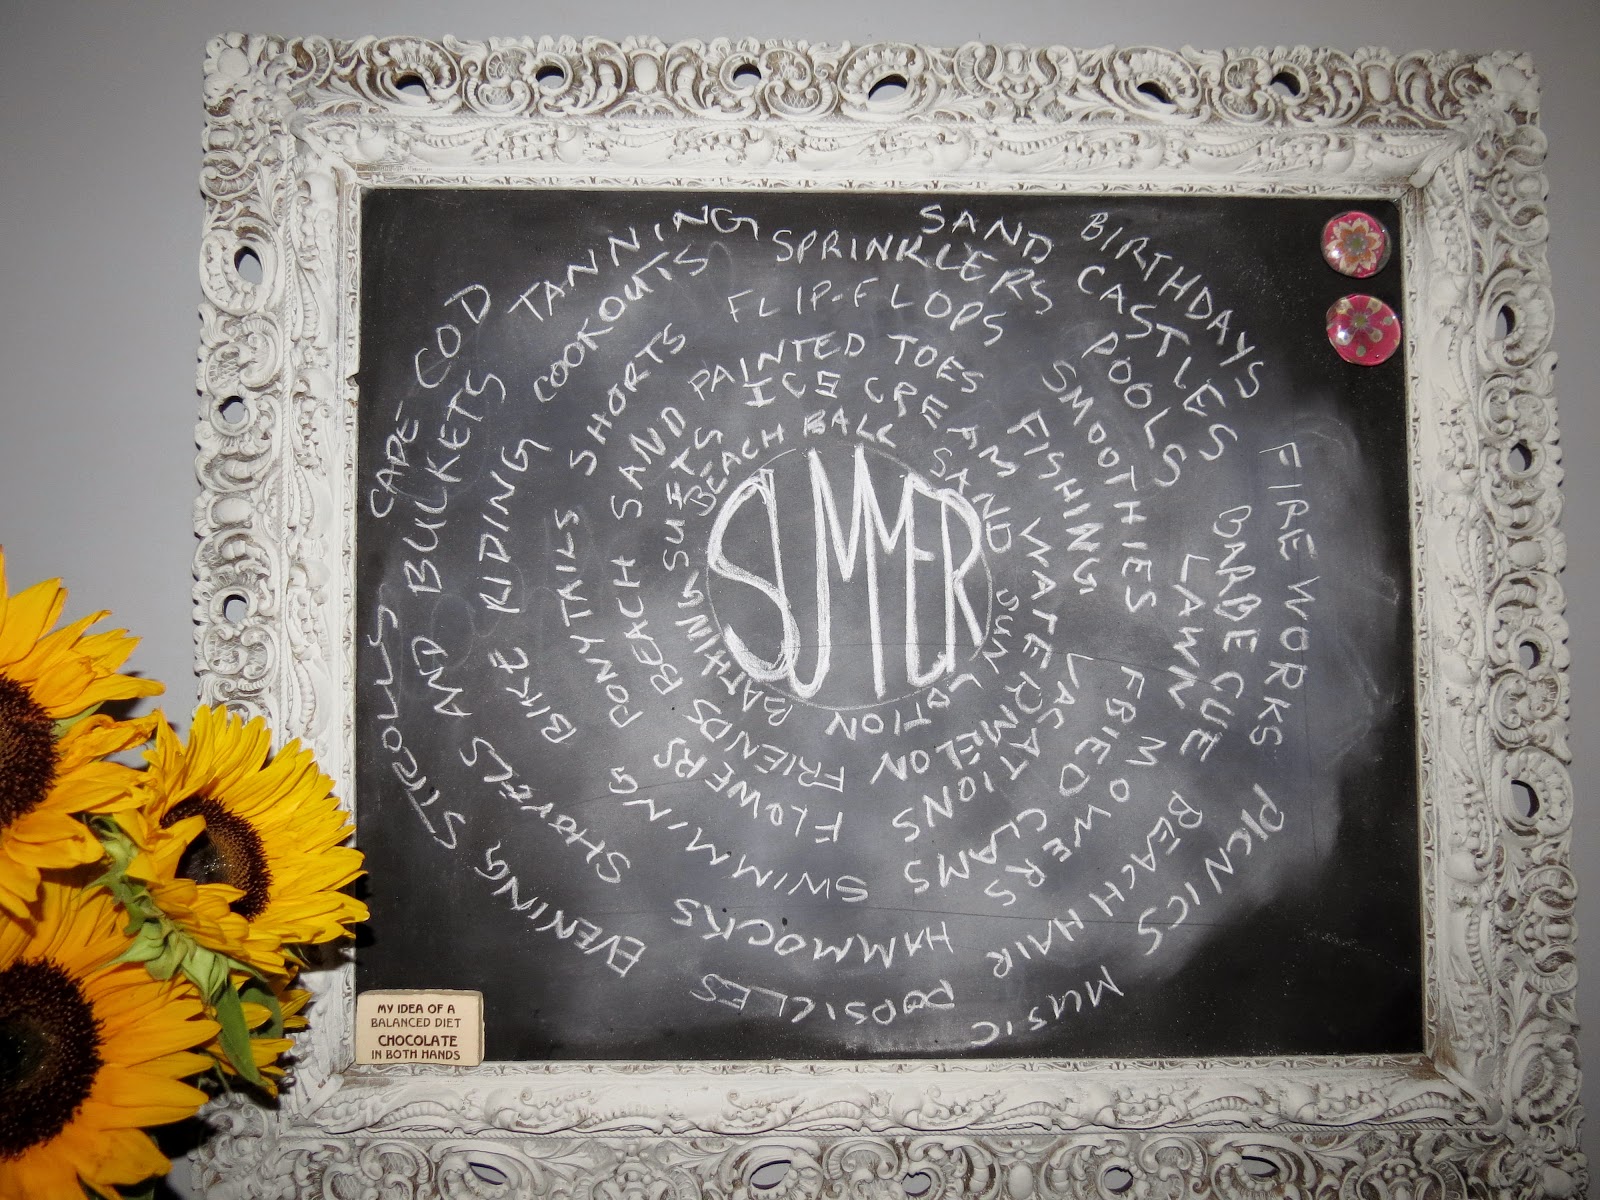 SUMMER
BEACH BALL
SAND
SUN LOTION
BATHING SUITS
ICE CREAM
WATERMELON
FRIENDS
BEACH SAND
PAINTED TOES
FISHING
VACATIONS
FLOWERS
PONYTAILS
SHORTS
FLIP-FLOPS
SMOOTHIES
FRIED CLAMS
SWIMMING
BIKE RIDING
COOKOUTS
SPRINKLERS
POOLS
LAWN MOWERS
HAMMOCKS
SHOVELS AND BULKETS
TANNING
SAND CASTLES
BARBECUE
BEACH HAIR
POPSICLES
EVENING STROLLS
CAPE-COD
BIRTHDAYS
FIRE WORKS
PICNICS
MUSIC
MY IDEA OF A
BALANCED DIET
CHOCOLATE
IN BOTH HANDS